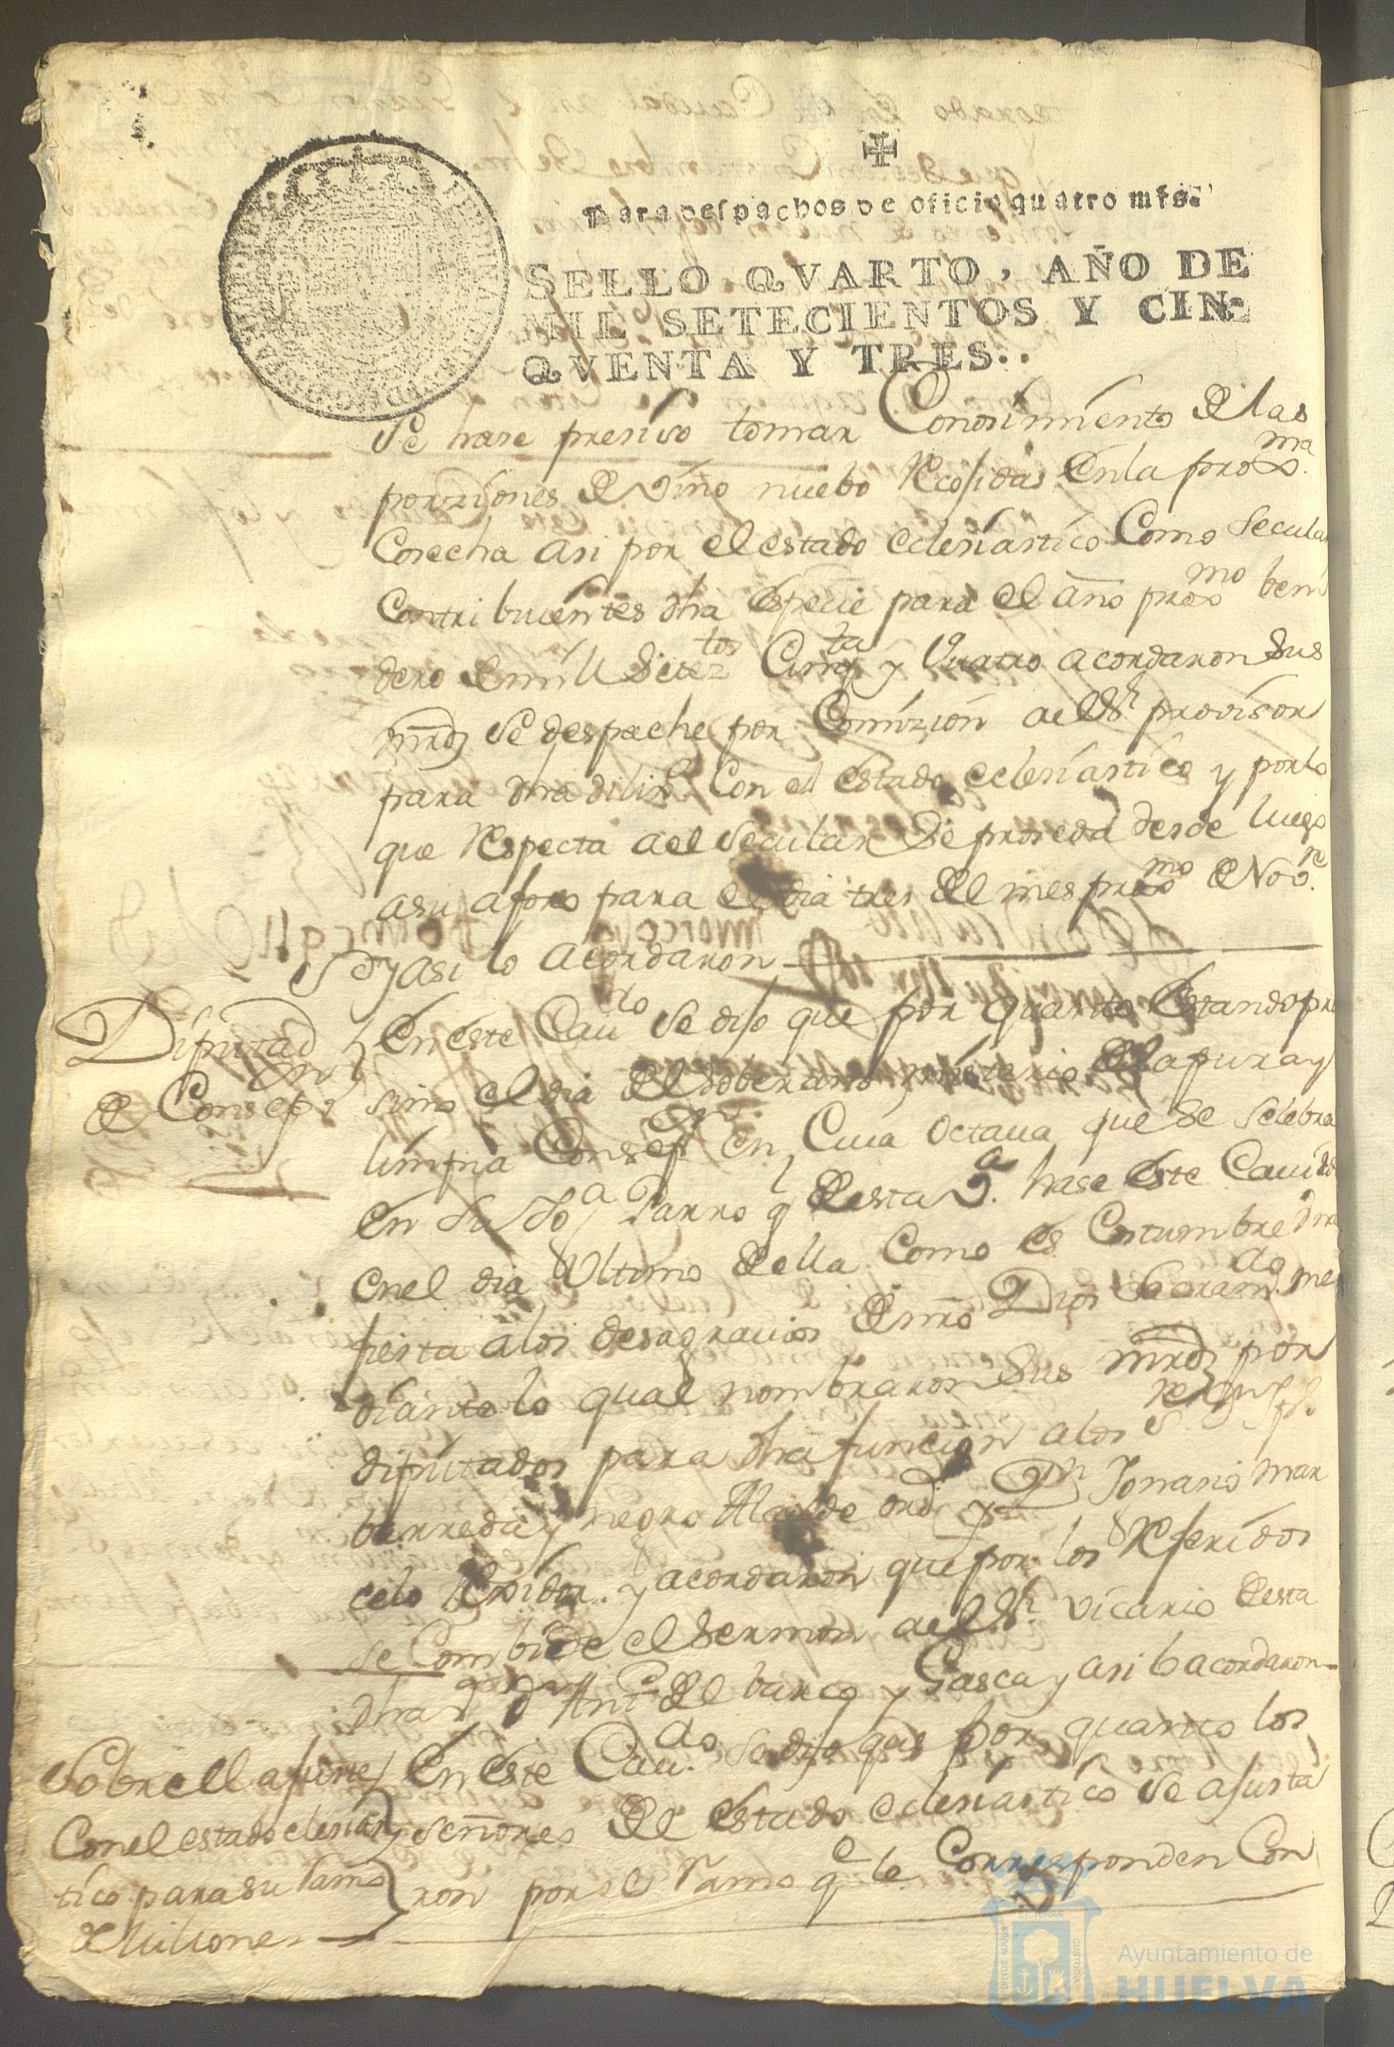 ✠
Para despachos de oficio quatro mrs.
SELLO QVARTO, AÑO DE
MIL SETECIENTOS Y CIN-
QVENTA Y TRES..
Se hase presiso tomar Conosimiento de las
porziones de vino nuebo Recojidas en la proxma.
Cosecha asi por el estado eclesiastico Como secular
Contribuientes dha Especie para el año proxmo beni
dero de mil Seteztos Cinqta y Quatro acordaron Sus
mrds Se despache por Comizion a el Sr. provisor
para dha dilixa Con el estado eclesiastico y por lo
que Respecta a el Secular Se proseda desde luego
a su aforo para el dia tres del mes proxmo de Nove.
y asi lo acordaron
Diputad
de Consepn
En este Cavdo se dijo que por quanto Estando pro
simo el dia del soberano misterio de la pura y
limpia Consepn en Cuia Octava que se selebra
en la Parroql de esta Va. hase este Cavdo
en el dia Ultimo de ella Como es Costumbre dha
fiesta a los desagravios de nro Dios Sacramdo. me
diante lo qual nombraron Sus mrds por
diputados para dha funcion a los S.
barreda y negro Alcalde ordo y Dn Ignacio Mar
celo Rexidor. y acordaron que por los Referidos
se Combide el Sermon a el Sr. Vicario de esta
dha Dn Anto del barco y Gasca y asi lo acordaron
Sobre el ajuste
Con el estado eclesias
tico para su Ramo
de Millones
En este Cavdo. se dijo que por quanto los
señores del estado eclesiastico se ajusta
ron por el Ramo qe le Corresponden Con
Ayuntamiento de
HUELVA